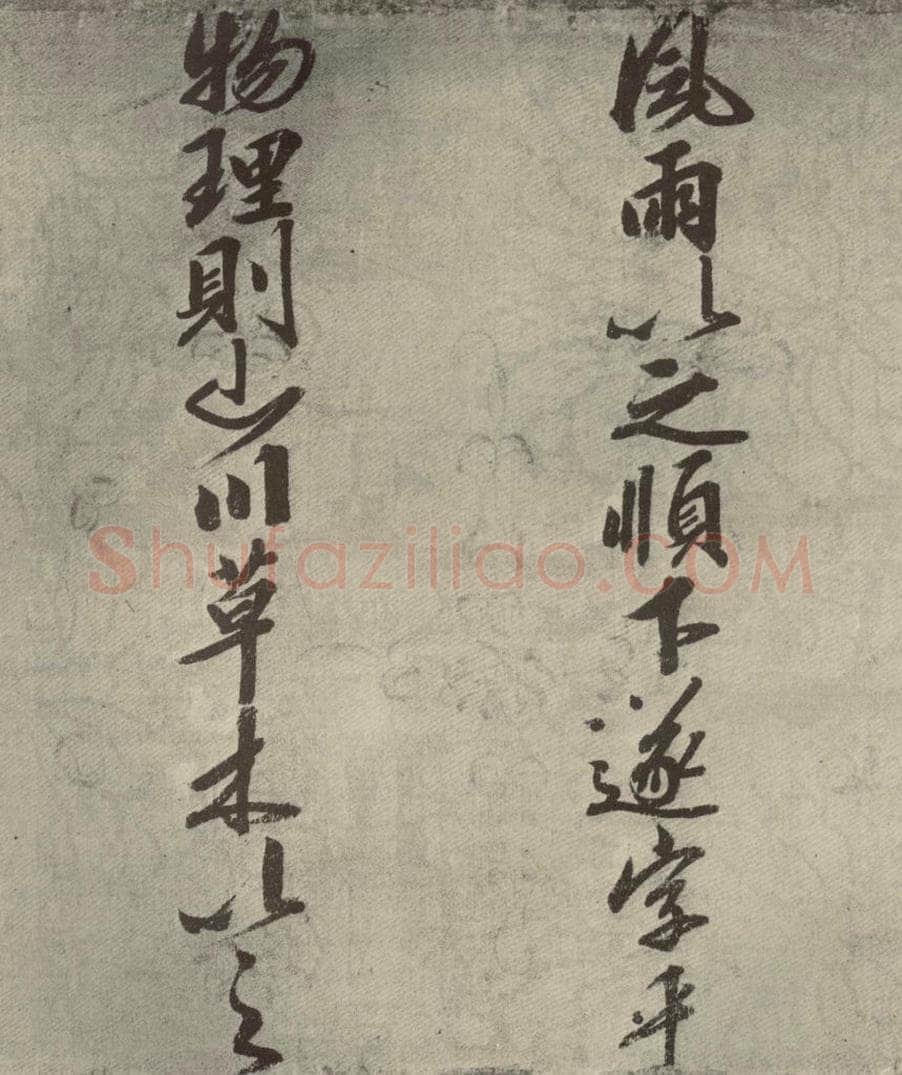 風雨以之順下遂字平
物理則山川草木以之
Shufaziliao.COM